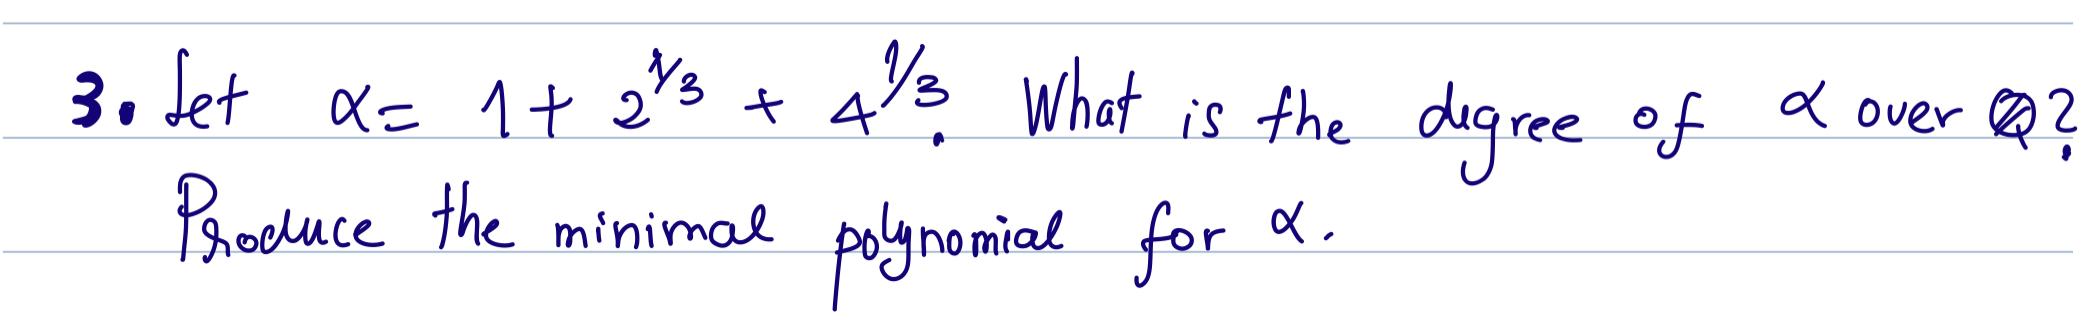 3. Let α = 1 + 2^{1/3} + 4^{1/3}. What is the degree of α over ℚ?
Produce the minimal polynomial for α.